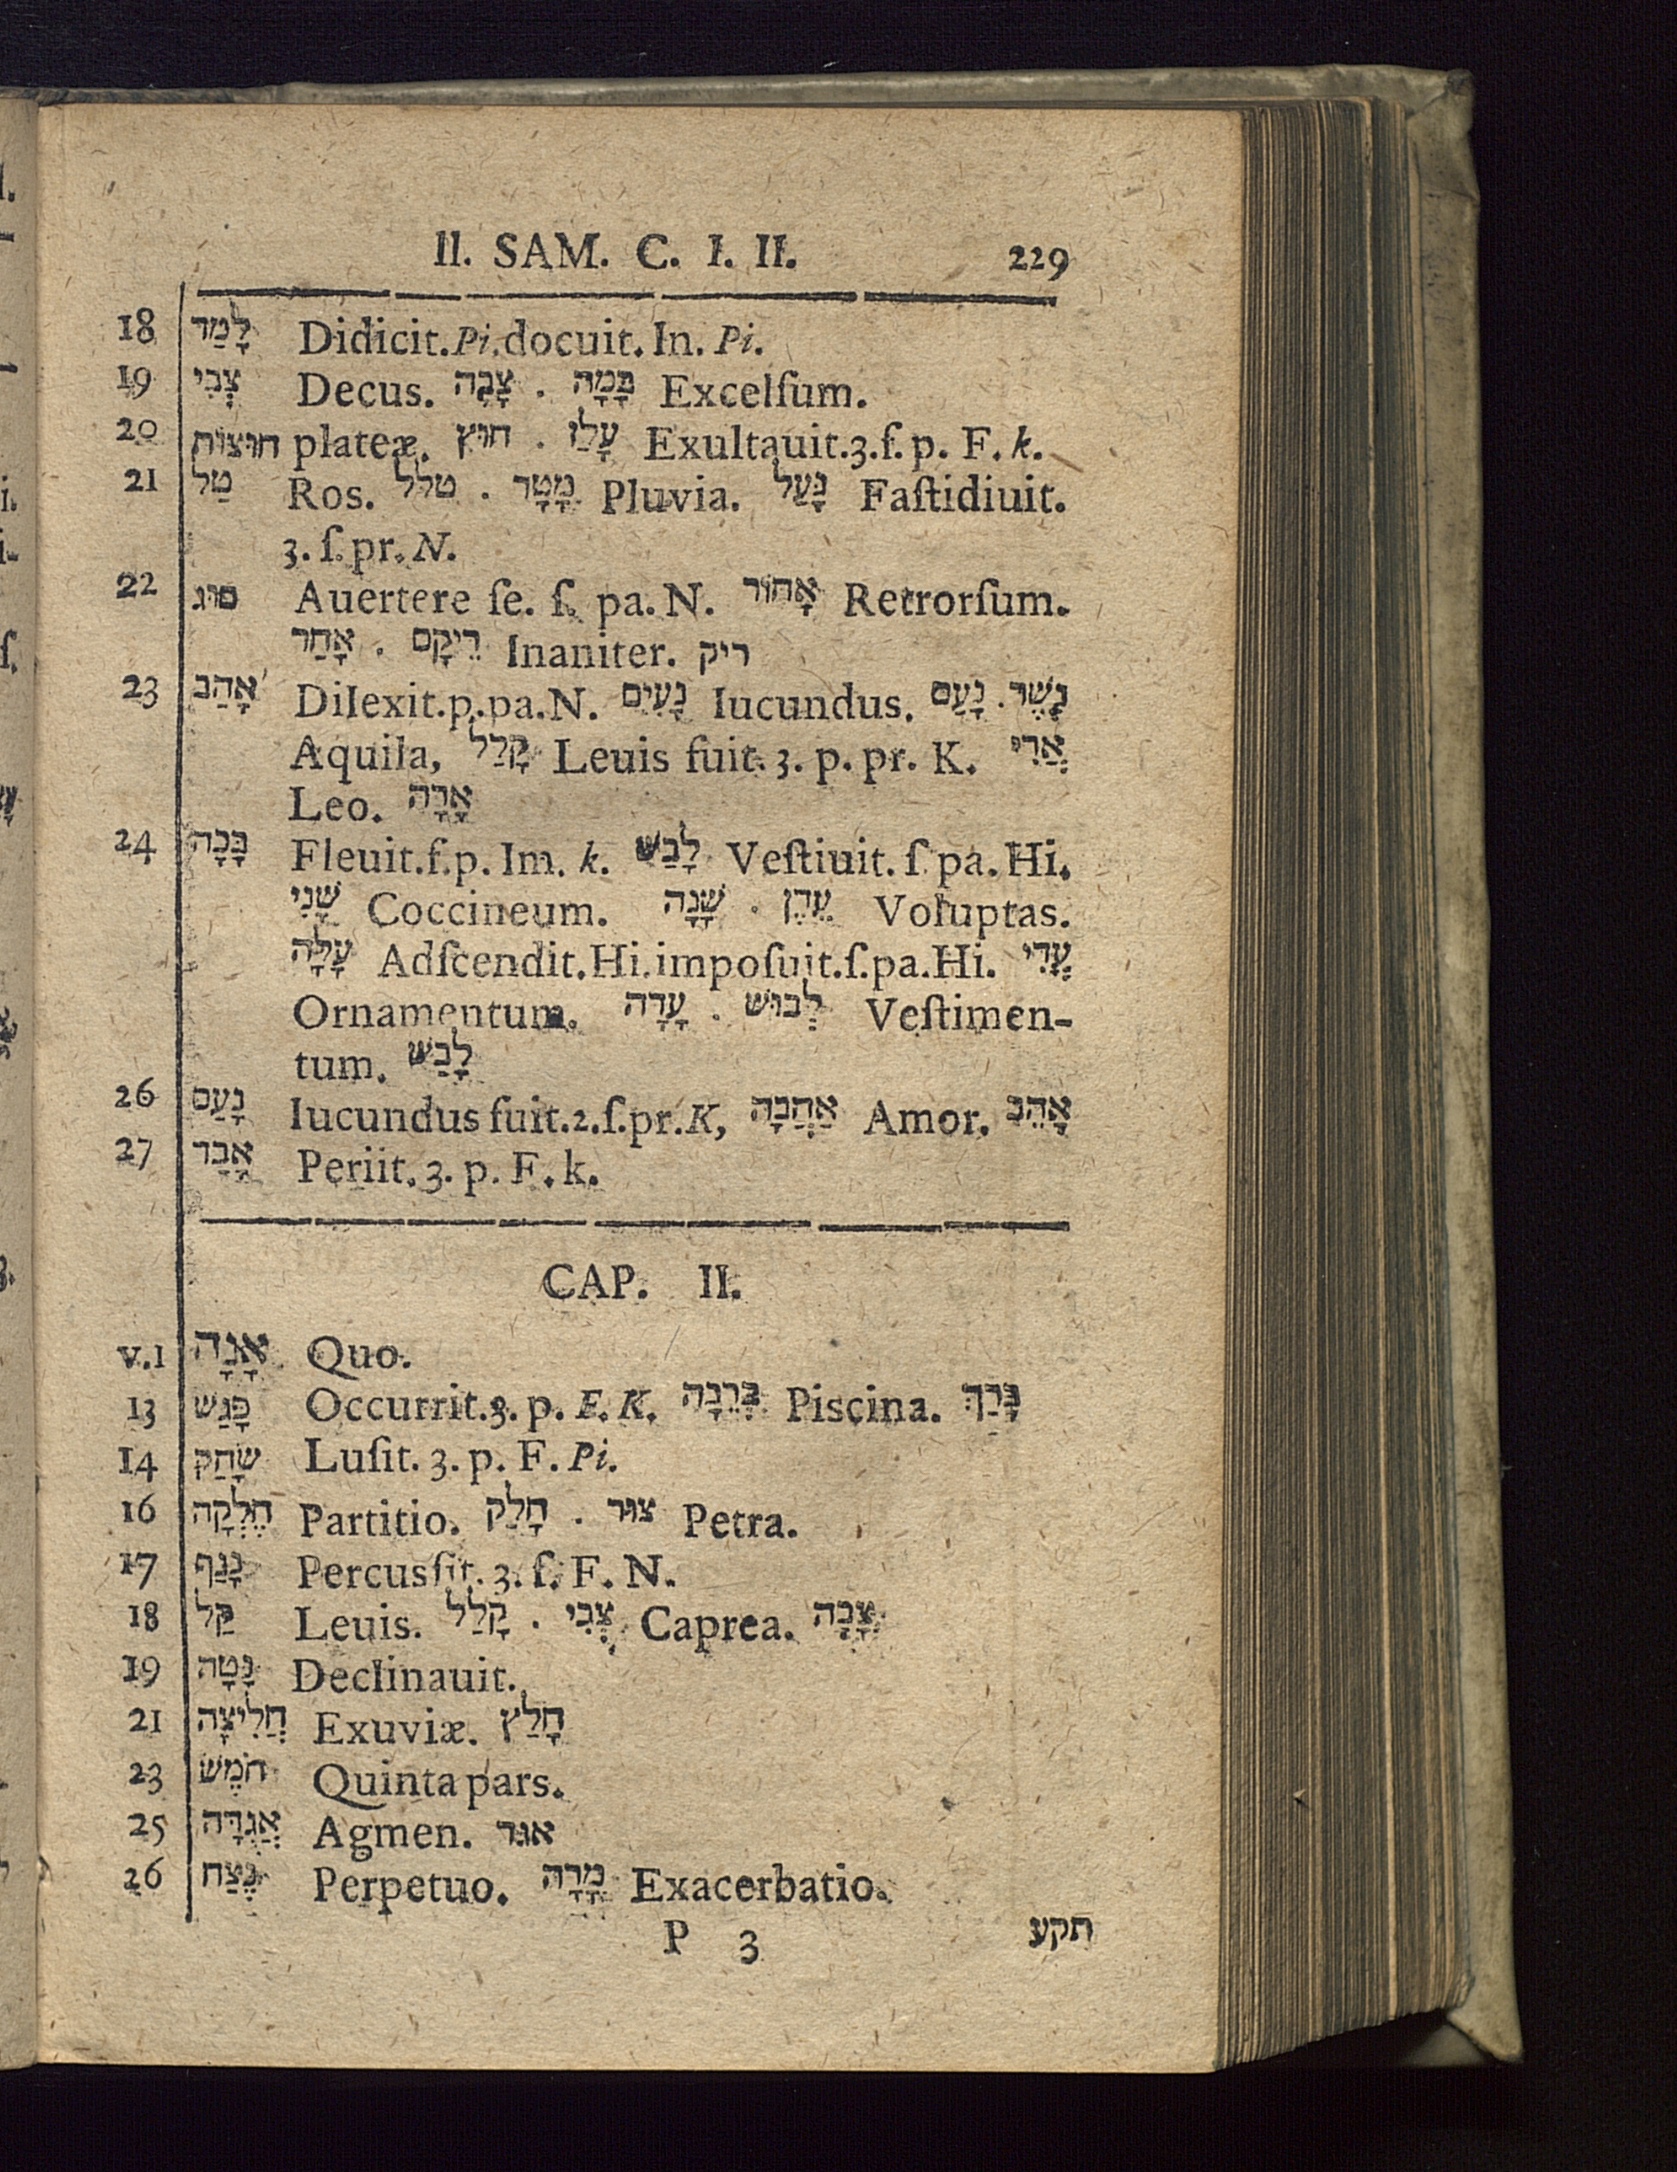 II. SAM. C. I. II. 229
18 לָמַד Didicit. Pi. docuit. In. Pi.
19 צְבִי Decus. צָבָה . בָּמָה Excelſum.
20 חוּצוֹת plateæ. חוּץ . עָלַז Exultauit. 3. ſ. p. F. k.
21 טַל Ros. טלל . מָטָר Pluvia. גָּעַל Faſtidiuit.
3. ſ. pr. N.
22 סוּג Auertere ſe. ſ. pa. N. אָחוֹר Retrorſum.
אָחַר . רֵיקָם Inaniter. ריק
23 אָהַב Dilexit. p. pa. N. נָעִים Iucundus. נָעַם . נֶשֶׁר
Aquila, קָלַל Leuis fuit. 3. p. pr. K. אֲרִי
Leo. אָרָה
24 בָּכָה Fleuit. f. p. Im. k. לָבַשׁ Veſtiuit. ſ pa. Hi.
שָׁנִי Coccineum. שָׁנָה . עֵדֶן Voluptas.
עָלָה Adſcendit. Hi. impoſuit. ſ. pa. Hi. עֲדִי
Ornamentum. עָדָה . לְבוּשׁ Veſtimen-
tum. לָבַשׁ
26 נָעַם Iucundus fuit. 2. ſ. pr. K, אַהֲבָה Amor. אָהֵב
27 אָבַד Periit. 3. p. F. k.
CAP. II.
v. 1 אָנָה Quo.
13 פָּגַשׁ Occurrit. 3. p. F. K. בְּרֵכָה Piscina. בָּרַךְ
14 שָׂחַק Luſit. 3. p. F. Pi.
16 חֶלְקָה Partitio. חָלַק . צוּר Petra.
17 נָגַף Percuſſit. 3. ſ. F. N.
18 קַל Leuis. קָלַל . צְבִי Caprea. צָבָה
19 נָטָה Declinauit.
21 חֲלִיצָה Exuviæ. חָלַץ
23 חֹמֶשׁ Quinta pars.
25 אֲגֻדָּה Agmen. אגד
26 נֶצַח Perpetuo. מָרָה Exacerbatio.
P 3 תקע